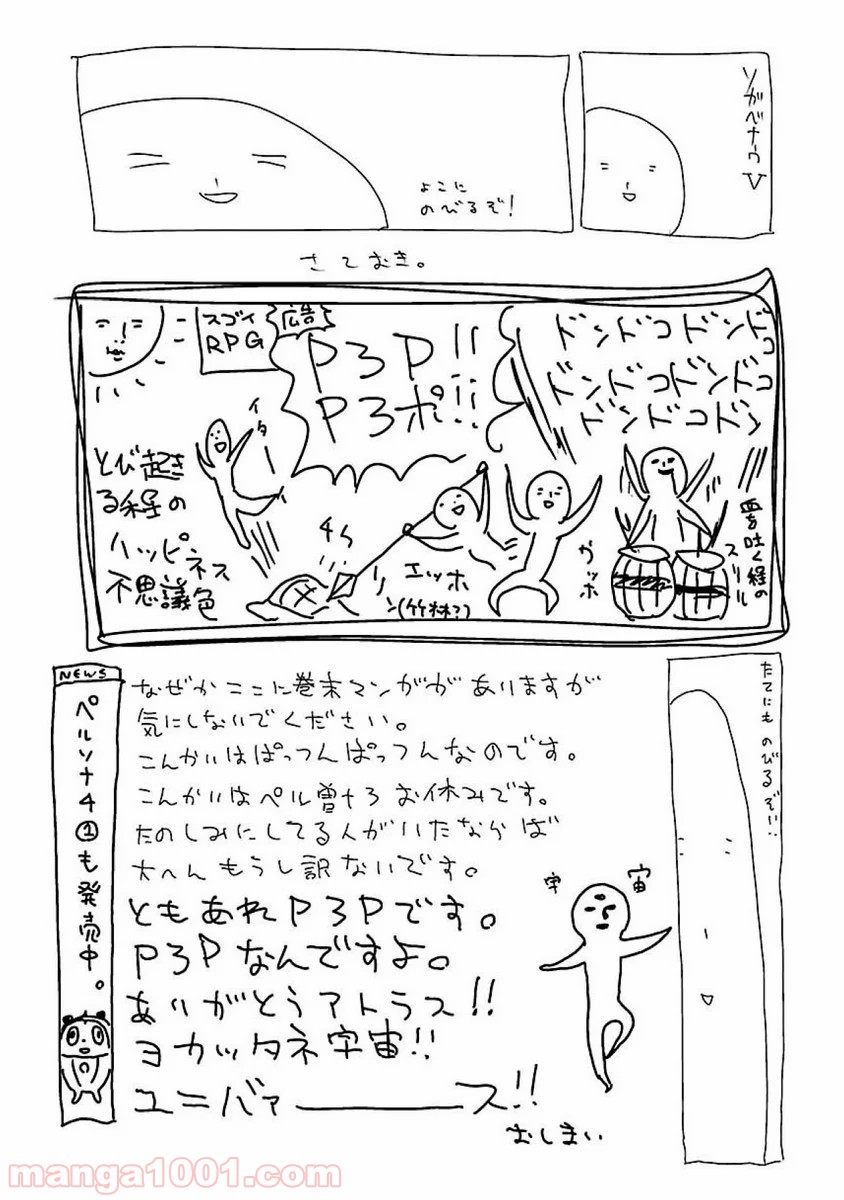 ソガベナウ
V
よこに
のびるぞ!
さておき。
ドンドコドンドコ
ドンドコドンドコ
ドンドコドン
P3P!!
P3ポ!!
広告
スゴイ
RPG
イターイ
とび起き
る程の
ハッピネス
不思議色
チャリン
エッホ
(竹林?)
ガッホ
血を吐く程の
スリル
たてにも のびるぞい!
なぜかここに巻末マンガが ありますが
気にしないでください。
こんかいはぱっつんぱっつんなのです。
こんかいはペル曽ナ3 お休みです。
たのしみにしてる人がいたならば
大へん もうし訳ないです。
ともあれP3Pです。
P3Pなんですよ。
ありがとうアトラス!!
ヨカッタネ宇宙!!
ユニバァーーース!!
おしまい
宇宙
NEWS
ペルソナ4①も発売中。
manga1001.com